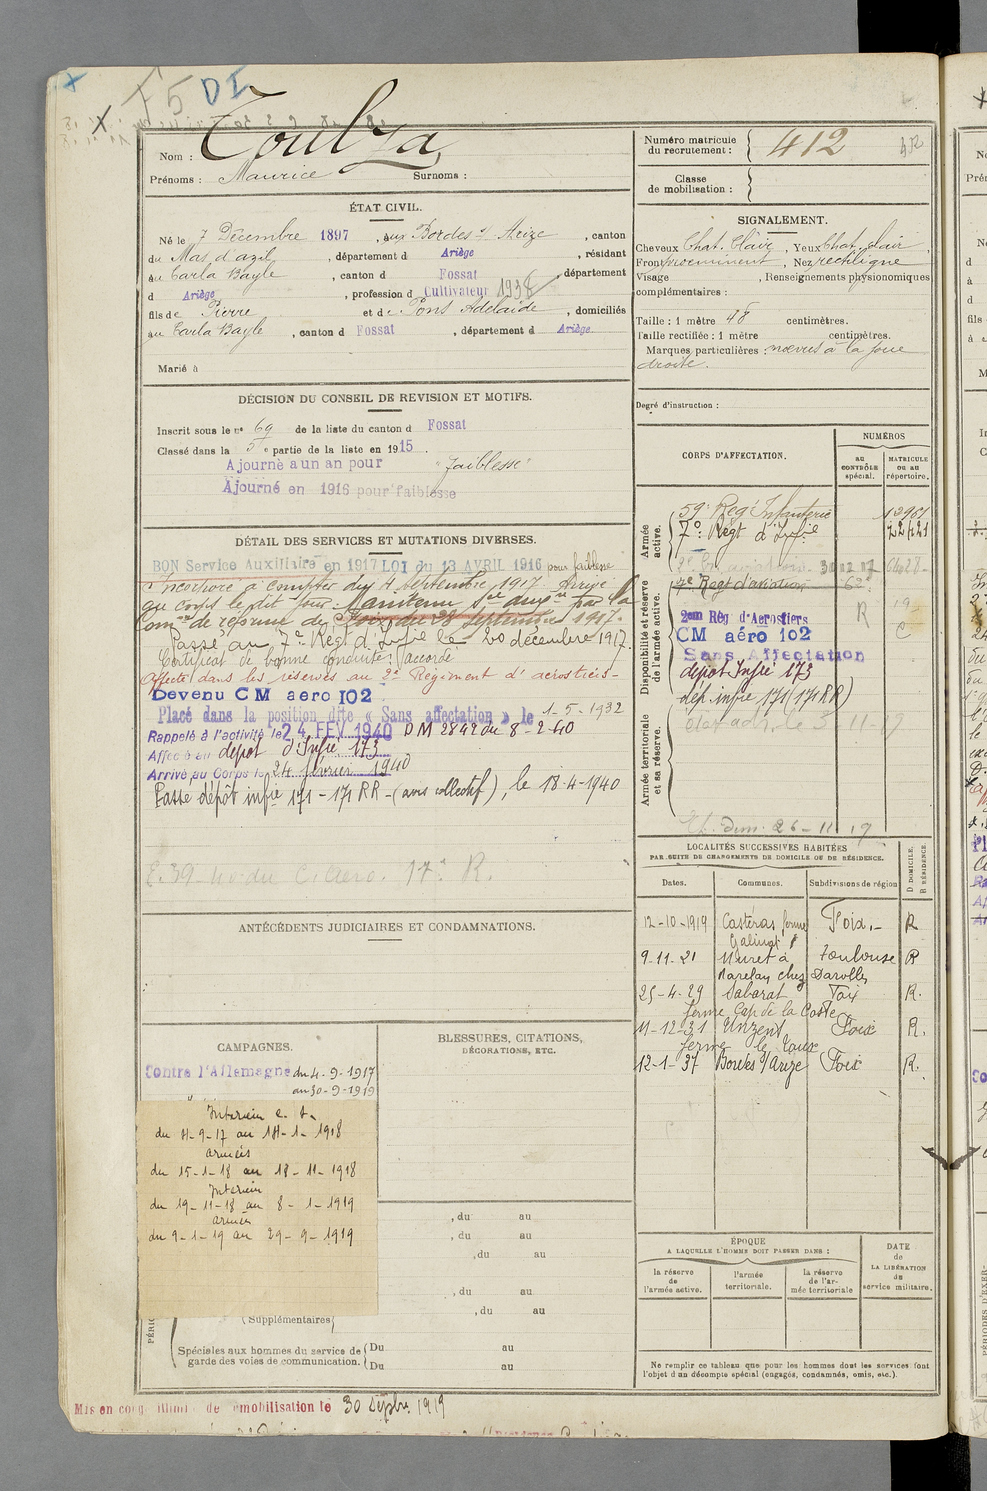 F5 DI
Nom : Toulza
Prénoms : Maurice Surnoms :
ÉTAT CIVIL.
Né le 7 Décembre 1897, aux Bordes s/ Arize, canton
du Mas d'azil, département d Ariège, résidant
au Carla Bayle, canton d Fossat, département
d Ariège, profession d Cultivateur 1938
fils de Pierre et de Pons Adélaïde, domiciliés
au Carla Bayle, canton d Fossat, département d Ariège.
Marié à
DÉCISION DU CONSEIL DE REVISION ET MOTIFS.
Inscrit sous le n° 69 de la liste du canton d Fossat
Classé dans la 5e partie de la liste en 1915.
Ajourné a un an pour "faiblesse"
Ajourné en 1916 pour faiblesse
DÉTAIL DES SERVICES ET MUTATIONS DIVERSES.
BON Service Auxiliaire en 1917 LOI du 13 AVRIL 1916 pour faiblesse
Incorporé à compter du 4 septembre 1917. Arrivé
au corps le dit jour. Maintenu Sce auxre par la
Comon de réforme de Foix du 28 septembre 1917.
Passé au 7e Régt d'Infie le 20 décembre 1917.
Certificat de bonne conduite : accordé
Affecté dans les réserves au 2e Régiment d'aérostiers-
Devenu CM aero 102
Placé dans la position dite « Sans affectation » le 1-5-1932
Rappelé à l'activité le 24 FEV 1940 DM 2842 du 8-2-40
Affecté au depot d'Infie 173
Arrivé au Corps le 24 février 1940
Passé dépôt infie 171 - 171 RR - (avis collectif), le 18-4-1940
17e R.
ANTÉCÉDENTS JUDICIAIRES ET CONDAMNATIONS.
CAMPAGNES.
Contre l'Allemagne du 4-9-1917
au 30-9-1919
Intérieur c. s.
du 4-9-17 au 14-1-1918
armées
du 15-1-18 au 18-11-1918
Intérieur
du 19-11-18 au 8-1-1919
armées
du 9-1-19 au 29-9-1919
BLESSURES, CITATIONS,
DÉCORATIONS, ETC.
, du au
, du au
, du au
, du au
, du au
(Supplémentaires
Spéciales aux hommes du service de garde des voies de communication. Du au
Du au
Mis en congé illimité de démobilisation le 30 Septbre 1919
Numéro matricule du recrutement : 412
Classe de mobilisation :
SIGNALEMENT.
Cheveux Chat. Clair, Yeux Chat. clair
Front proéminent, Nez rectiligne
Visage , Renseignements physionomiques
complémentaires :
Taille : 1 mètre 48 centimètres.
Taille rectifiée : 1 mètre centimètres.
Marques particulières : nœvus à la joue
droite.
Degré d'instruction :
CORPS D'AFFECTATION.
NUMÉROS
au CONTRÔLE spécial.
MATRICULE ou au répertoire.
Armée active.
59e Rég Infanterie 12961
7e Régt d'Infie
Disponibilité et réserve de l'armée active.
Regt d'aviation
2eme Rég d'Aerostiers
CM aéro 102
Sans Affectation
depot Infie 173
dép. infie 171 (171 RR)
Armée territoriale et sa réserve.
LOCALITÉS SUCCESSIVES HABITÉES
PAR SUITE DE CHANGEMENTS DE DOMICILE OU DE RÉSIDENCE.
Dates. Communes. Subdivisions de région D DOMICILE. R RÉSIDENCE.
12-10-1919 Castéras ferme Foix.- R
9-11-21 Muret à Toulouse R
chez Darolles
25-4-29 Sabarat Foix R.
ferme Cap de la Coste
11-12-31 Unzent Foix R.
ferme le
12-1-37 Bordes s/Arize Foix R.
ÉPOQUE
A LAQUELLE L'HOMME DOIT PASSER DANS :
DATE de LA LIBÉRATION du service militaire.
la réserve de l'armée active.
l'armée territoriale.
la réserve de l'armée territoriale
Ne remplir ce tableau que pour les hommes dont les services font
l'objet d'un décompte spécial (engagés, condamnés, omis, etc.).